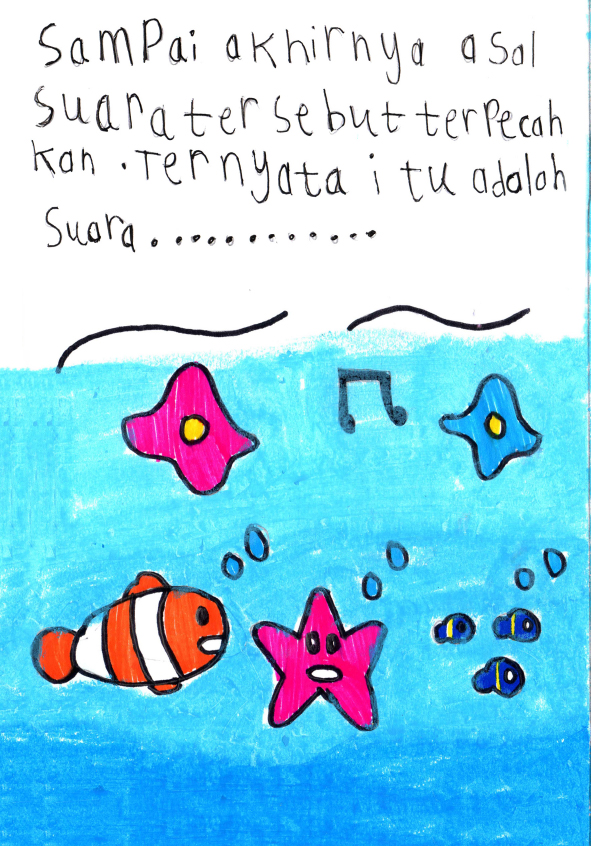 Sampai akhirnya asal
suara tersebut terpecah
kan. Ternyata itu adalah
suara.............